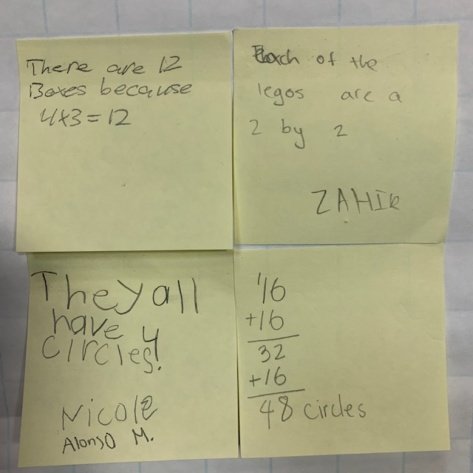 There are 12
Boxes because
4x3=12
Each of the
legos are a
2 by 2
ZAHIR
They all
have 4
circles!
Nicole
Alonso M.
116
+16
32
+16
48 circles